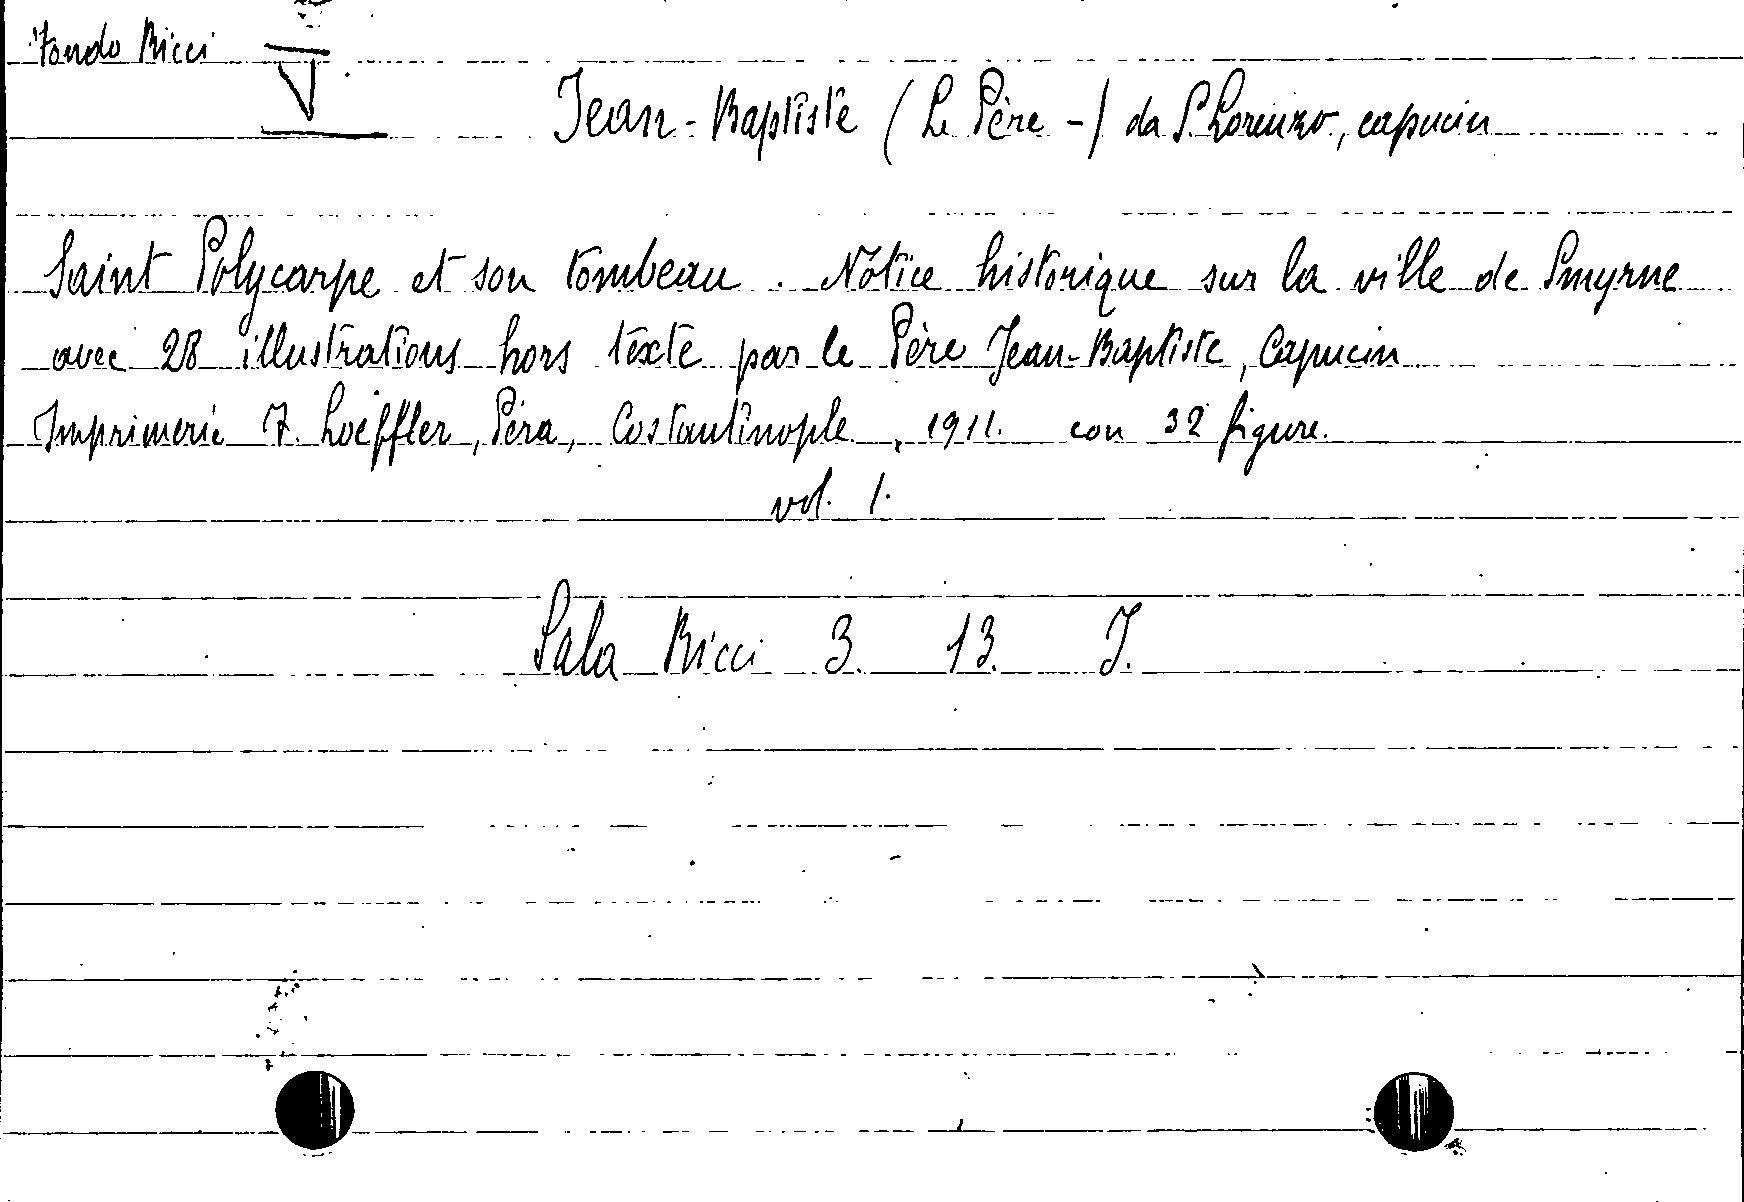 Fondo Ricci V
Jean-Baptiste (Le Père -) da S. Lorenzo, capucin
Saint Polycarpe et son tombeau. Notice historique sur la ville de Smyrne
avec 28 illustrations hors texte par le Père Jean-Baptiste, Capucin
Imprimerie F. Loeffler, Péra, Costantinople, 1911. con 32 figure.
vol. 1.
Sala Ricci 3. 13. J.